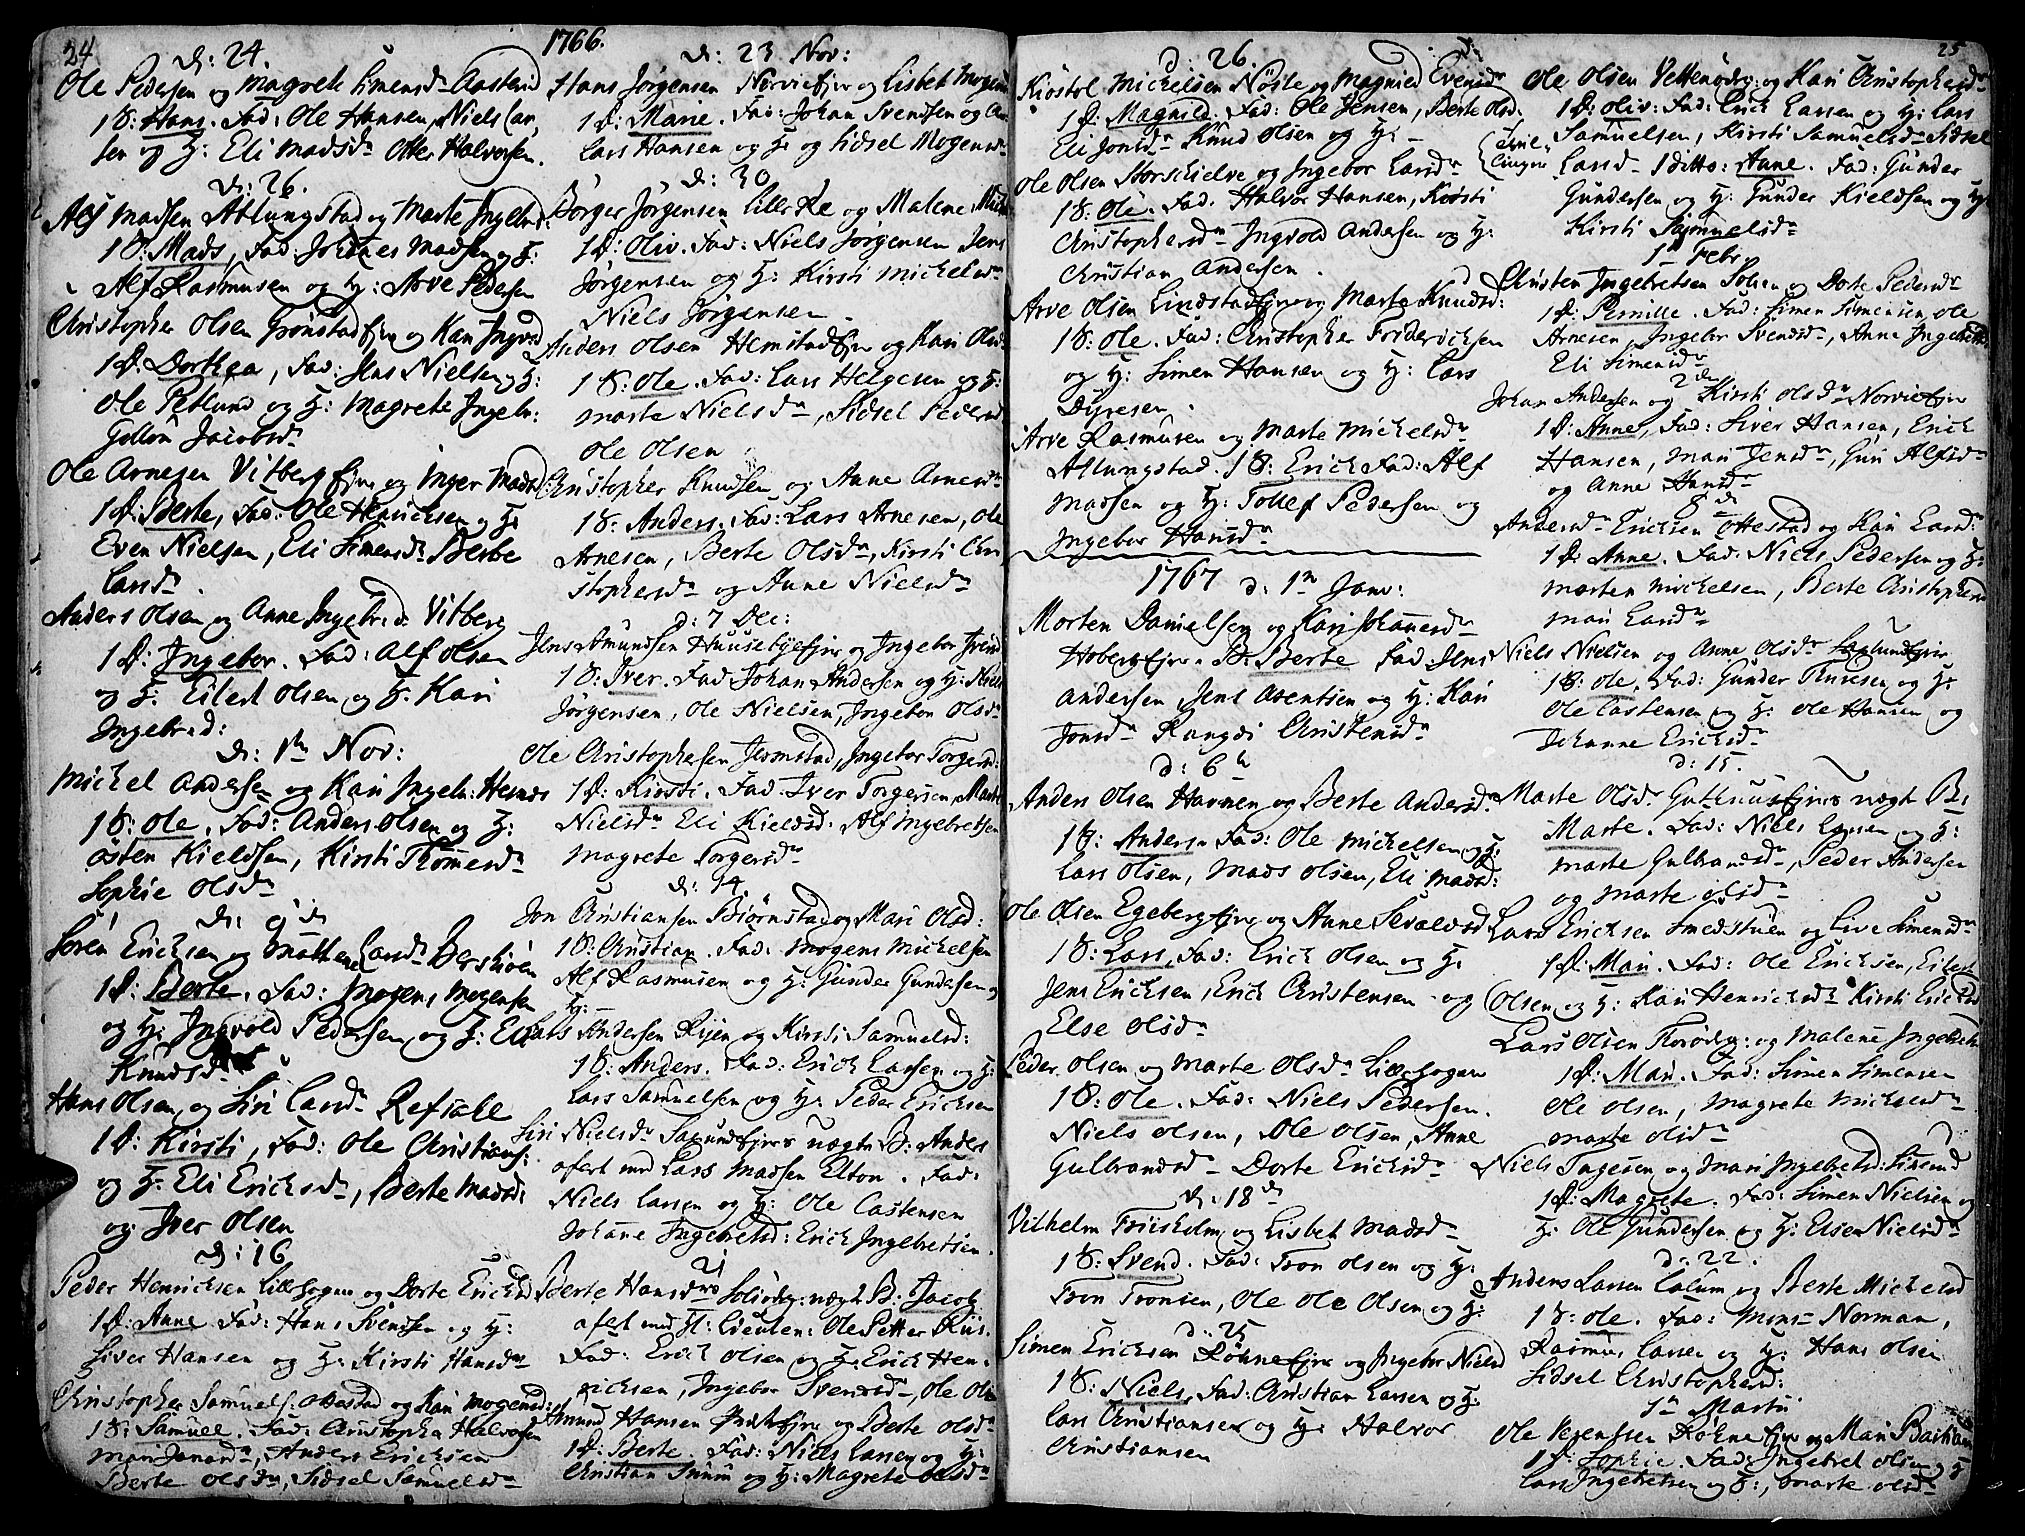 24
1766.
d: 24.
Ole Pedersen og Magrete Simensd. Aasterud
1 S: Hans. Fad: Ole Hansen, Niels Lar
sen og H: Eli Madsd. Otter Halvorsen.
d: 26.
Alf Madsen Atlungstad og Marte Ingebred:
1 S: Mads, Fad: Johanes Madsen og H:
Alf Rasmusen og H: Arve Pedersen
Christopher Olsen Grønstadeje og Kari Ingvold
1 D: Dorthea, Fad: Jens Nielsen og H:
Ole Petlund og H: Magrete Ingebr:
Jacobsd.
Ole Arnezen Vitberg eje og Inger Madsd
1 D: Berte, Fad: Ole Henricksen og H:
Even Nielsen, Eli Simensd. Berte
Larsd.
Anders Olsen og Anne Ingebred Vitberg
1 D: Ingebor. Fad: Alf Olsen
og H: Eilert Olsen og H: Kari
Ingebred:
d: 1te Nov:
Michel Andersen og Kari Ingebr: Hernes
1 S: Ole. Fad: Anders Olsen og H:
Østen Kieldsen, Kirsti Thomesd.
Sophie Olsd.
d: 9de
Søren Erichsen og Mathea Larsd. Berskoen
1 D: Berte. Fad: Mogens Mogensen
og H: Ingvold Pedersen og H: Eli
Knudsd.
Hans Olsen og Siri Larsd. Refsahl
1 D: Kirsti, Fad: Ole Christians:
og H: Eli Ericksd., Berte Madsd:
og Iver Olsen
d: 16
Peder Henrichsen Lillehogen og Dorte Ericksd
1 D: Anne Fad: Hans Svendsen og H:
Siver Hansen og H: Kirsti Hansd.
Christopher Samuels: Ottestad og Kari Mogensd:
1 S: Samuel. Fad: Christopher Halvorsen
Mari Jonsd., Anders Ericksen
Berte Olsd., Sidsel Samuelsd.
d: 23 Nov:
Hans Jørgensen Norvieeje og Lisbet Mogensd
1 D: Marie. Fad: Johan Svendsen og
Lars Hansen og H: og Sidsel Mogensd.
d: 30
Børger Jørgensen Lille Re og Malene
1 D: Oliv. Fad: Niels Jørgensen Jens
Jørgensen og H: Kirsti Michelsd.
Niels Jørgensen.
Anders Olsen Hemstadeje og Kari Olsd.
1 S: Ole. Fad: Lars Helgesen og H:
Marte Nielsd., Sidsel Pedersd
Ole Olsen
Christopher Knudsen og Anne Arnesd.
1 S: Anders. Fad: Lars Arnesen, Ole
Arnesen, Berte Olsd., Kirsti Chri
stophersd. og Anne Nielsd.
d: 7 Dec:
Jens Amundsen Huusebyeeje og Ingebor Ivers
1 S: Iver. Fad Johan Andersen og H: Niels
Jørgensen, Ole Nielsen, Ingebor Olsd.
Ole Christophersen Jesmstad, Ingebor Torgersd:
1 D: Kirsti. Fad: Iver Torgersen, Marte
Nielsd. Eli Kieldsd. Alf Ingebretsen
Magrete Torgersd.
d: 14.
Jon Christiansen Biørnstad og Mari Olsd:
1 S: Christian. Fad: Mogens Michelsen
Alf Rasmusen og H: Gunder Gundersen og
H:
Lars Andersen Rijen og Kirsti Samuelsd:
1 S: Anders. Fad: Erich Larsen og H:
Lars Samuelsen og H: Peder Ericksen
Siri Nielsd. Saxlundeje nægte B: Anders
aflet med Lars Madsen Elton. Fad:
Niels Larsen og H: Ole Castensen
Johane Ingebretsd: Erich Ingebretsen.
21
Berte Hansd. nægte B: Jacob
aflet med H: Lieuten: Ole Petter Riis.
Fad: Erick Olsen og H: Erich Hen-
ricksen, Ingebor Svensd., Ole Ols
Amund Hansen og Berte Olsd.
1 D: Berte. Fad: Niels Larsen og H:
Christian Juum og H: Magrete Olsd.
25
d: 26.
Kiøstol Michelsen Nøsle og Magnild Evensd.
1 D: Magnild. Fad: Ole Jensen, Berte Olsd:
Eli Jonsd. Knud Olsen og H:
Ole Olsen Storskielve og Ingebor Larsd.
1 S: Ole. Fad: Halvor Hansen, Kirsti
Christophersd. Ingvold Andersen og H:
Christian Andersen.
Arve Olsen Lindstadeje og Marte Knudsd:
1 S: Ole. Fad: Christopher Friderichsen
og H: Simen Hansen og H: Lars
Dyresen.
Arve Rasmusen og Marte Michelsd.
Atlungstad. 1 S: Erich Fad: Alf
Madsen og H: Tollef Pedersen og
Ingebor Hansd.
1767 d: 1te Janv:
Morten Danielsen og Kari Johanesd.
Hobergeje. D: Berte Fad Jens
Andersen, Jens Arentsen og H: Kari
Jonsd. Rangdi Christensd.
d: 6te
Anders Olsen Havnen og Berte Andersd.
1 S: Anders. Fad: Ole Michelsen og H:
Lars Olsen, Mads Olsen, Eli Madsd:
Ole Olsen Egebergeje og Anne Sevaldsd
1 S: Lars, Fad: Erich Olsen og H:
Jens Ericksen, Erich Christensen og
Else Olsd.
Peder Olsen og Marte Olsd. Lillehogen
1 S: Ole. Fad: Niels Pedersen.
Niels Olsen, Ole Olsen, Anne
Gulbrandsd. Dorte Ericksd.
d: 18de
Vilhelm Friisholm og Lisbet Madsd.
1 S: Svend. Fad: Tron Olsen og H:
Tron Tronsen, Ole Ole Olsen og H:
d: 25
Simen Ericksen Røhneeje og Ingebor Nielsd
1 S: Niels, Fad: Christian Larsen og H:
Lars Christiansen og H: Halvor
Christiansen
Ole Olsen Vettenødeg: og Kari Christophersd.
1 D: Oliv: Fad: Erick Larsen og H: Lars
Samuelsen, Kirsti Samuelsd. Sidsel
Larsd. 1 ditto: Anne. Fad: Gunder
Gundersen og H: Gunder Kieldsen og H:
Kirsti Samuelsd.
1te Febr.
Christen Ingebretsen Solsen og Dorte Pedersd.
1 D: Pernille. Fad: Simen Simensen Ole
Arnesen, Ingebor Svensd., Anne Ingebretsd
Eli Simensd.
2de
Johan Andersen og Kirsti Olsd. Norvieeje
1 D: Anne, Fad: Siver Hansen, Erick
Hansen, Mari Jensd., Guri Alfsd.
og Anne Hansd.
8de
Andersd. Ericksen Ottestad og Kari Larsd.
1 D: Anne. Fad: Niels Pedersen og H:
Morten Michelsen, Berte Christophersd
Mari Larsd.
Niels Nielsen og Anne Olsd. Saxlundeje
1 S: Ole. Fad: Gunder Thuresen og H:
Ole Castensen og H: Ole Hansen og
Johanne Ericksd.
d: 15.
Marte Olsd. nægte B:
Marte. Fad: Niels Larsen og H:
Marte Gulbrandsd., Peder Andersen
og Marte Olsd.
Lars Ericksen Smedstuen og Live Simensd.
1 D: Mari. Fad: Ole Ericksen, Eilert
Olsen og H: Kari Henricksd. Kirsti Ericksd
Lars Olsen Korødeg: og Malene Ingebretsd
1 D: Mari. Fad: Simen Simensen
Ole Olsen, Magrete Michelsd.
Marte Olsd.
Niels Tagesen og Mari Ingebretsd: Simerud
1 D: Magrete. Fad: Simen Nielsen og
H: Ole Gundersen og H: Elsen Nielsd.
d: 22.
Anders Larsen Calum og Berte Michelsd
1 S: Ole. Fad: Mons: Norman,
Rasmus Larsen og H: Hans Olsen
Sidsel Christophersd:
1te Martii
Ole Røhneeje og Mari Bastian
1 D: Sophie. Fad: Ingebret Olsen og H
Lars Ingebretsen og H:, Marte Olsd.